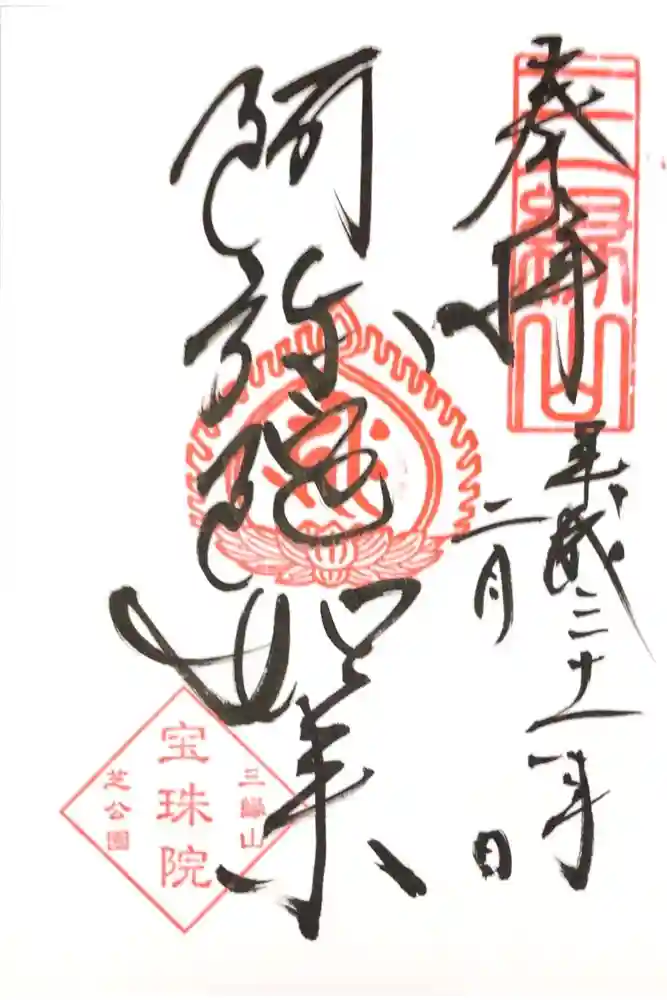 奉拝
三縁山
平成三十一年
二月
日
阿弥陀如来
三縁山
宝珠院
芝公園